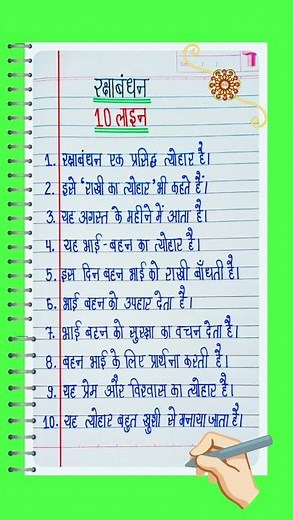 रक्षाबंधन
10 लाइन
1. रक्षाबंधन एक प्रसिद्ध त्योहार है।
2. इसे 'राखी का त्योहार' भी कहते हैं।
3. यह अगस्त के महीने में आता है।
4. यह भाई-बहन का त्योहार है।
5. इस दिन बहन भाई को राखी बाँधती है।
6. भाई बहन को उपहार देता है।
7. भाई बहन को सुरक्षा का वचन देता है।
8. बहन भाई के लिए प्रार्थना करती है।
9. यह प्रेम और विश्वास का त्योहार है।
10. यह त्योहार बहुत खुशी से मनाया जाता है।